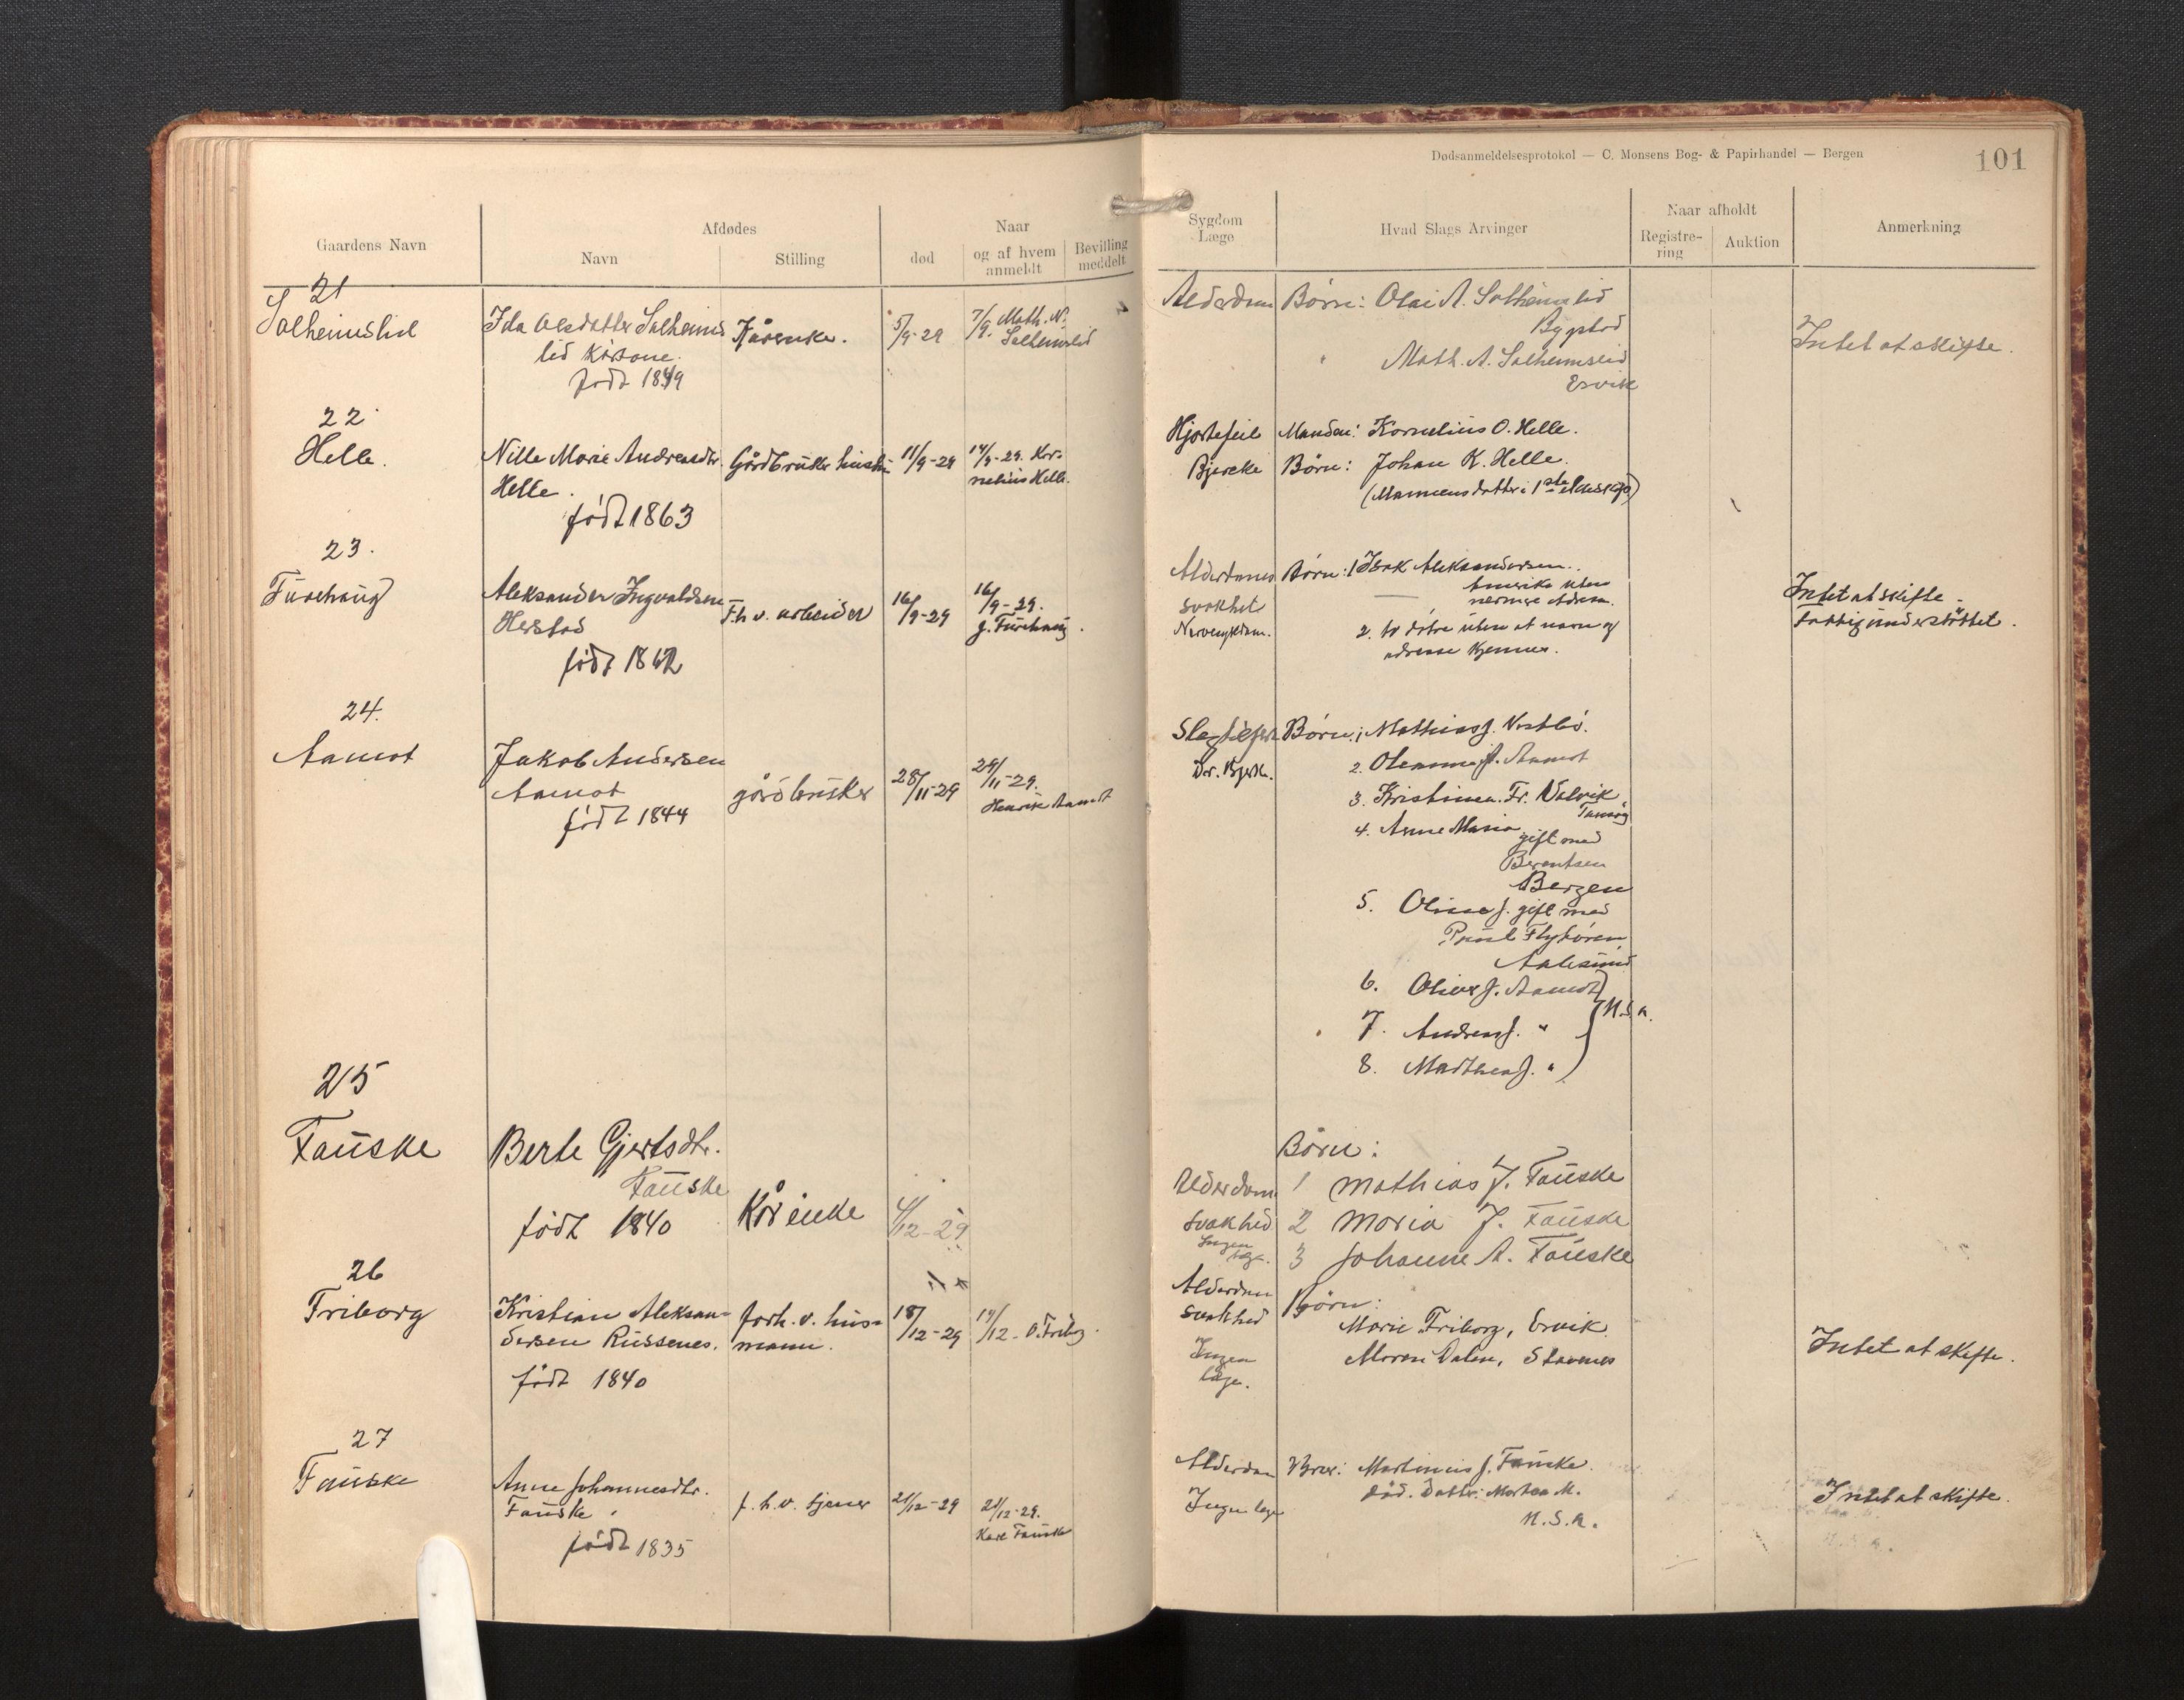 Dødsanmeldelsesprotokol — C. Monsens Bog- & Papirhandel — Bergen
101
Gaardens Navn
Afdødes
Navn
Stilling
Naar
død
og af hvem anmeldt
Bevilling meddelt
Sygdom
Læge
Hvad Slags Arvinger
Naar afholdt
Registre-
ring
Auktion
Anmerkning
21
Solheimslid
Ida Olsdatter Solheims
lid Kårkone.
født 1849
Kårenke.
5/9-29
7/9. Math. N.
Solheimslid
Alderdom
Børn: Olai A. Solheimslid
Bygstad
Math. A. Solheimslid
Ervik
Intet at skifte.
22
Helle.
Nille Marie Andreasdtr.
Helle.
født 1863
Gårdbruker hustru
11/9-29
14/9-29. Kor-
nelius Helle.
Hjertefeil
Bjercke
Manden: Kornelius O. Helle.
Børn: Johan K. Helle.
(Mannens datter i 1ste ekteskap)
23.
Furehaug
Aleksander Ingvaldsen
Herstad
født 1862
F.h.v. arbeider
16/9-29
16/9-29.
J. Furehaug.
Alderdoms
svakhet
Nervesykdom.
Børn: 1 Isak Aleksandersen.
Amerika uten
nermere Adresse.
2. to døtre uten at navn og
adresse kjennes.
Intet at skifte.
Fattigunderstøttet.
24.
Aamot
Jakob Andersen
Aamot
født 1844
gårdbruker
28/11-29
29/11-29.
Henrik Aamot
Dr. Bjerck.
Børn: Mathias J. Vestbø.
2. Oleanna J. Aamot
3. Kristine Fr. Valvik
4. Anne Maria
gift med
Berentsen
Bergen
5. Oline J. gift med
Paul Flyhøren
Aalesund
6. Oliver J. Aamot
7. Andreas J. "
8. Marthea J. "
N.S.A.
25
Fauske
Berte Gjertsdtr.
Fauske
født 1840
Kårenke
4/12-29
Alderdom
svakhed
Ingen
læge.
Børn:
1 Mathias J. Fauske
2 Maria J. Fauske
3 Johanne A. Fauske
26
Friborg
Kristian Aleksan=
dersen Russenes.
født 1840
forh. v. hus=
mann.
18/12-29
19/12- O. Friborg.
Alderdom
svakhed
Ingen
læge.
Børn:
Marie Friborg, Ervik
Maren Dalen, Stavnes
Intet at skifte.
27
Fauske
Anne Johannesdtr.
Fauske.
født 1835
f.h.v. tjener
21/12-29
21/12-29.
Karl Fauske
Alderdom
Ingen læge
Bror: Martinus J. Fauske.
død. Datter: Martha M.
N.S.A.
Intet at skifte.